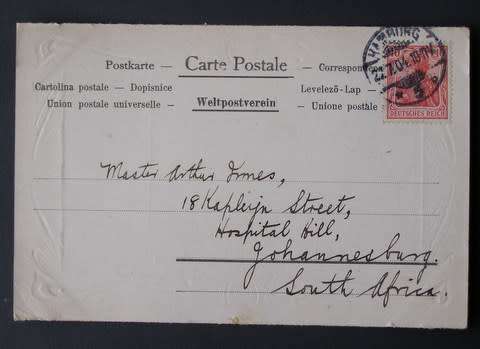 Postkarte — Carte Postale — Correspon
Cartolina postale — Dopisnice Levelező-Lap —
Union postale universelle — Weltpostverein — Unione postale
HAMBURG
22.7.04.
DEUTSCHES REICH
Master Arthur Innes,
18 Kapleijn Street,
Hospital Hill,
Johannesburg.
South Africa.